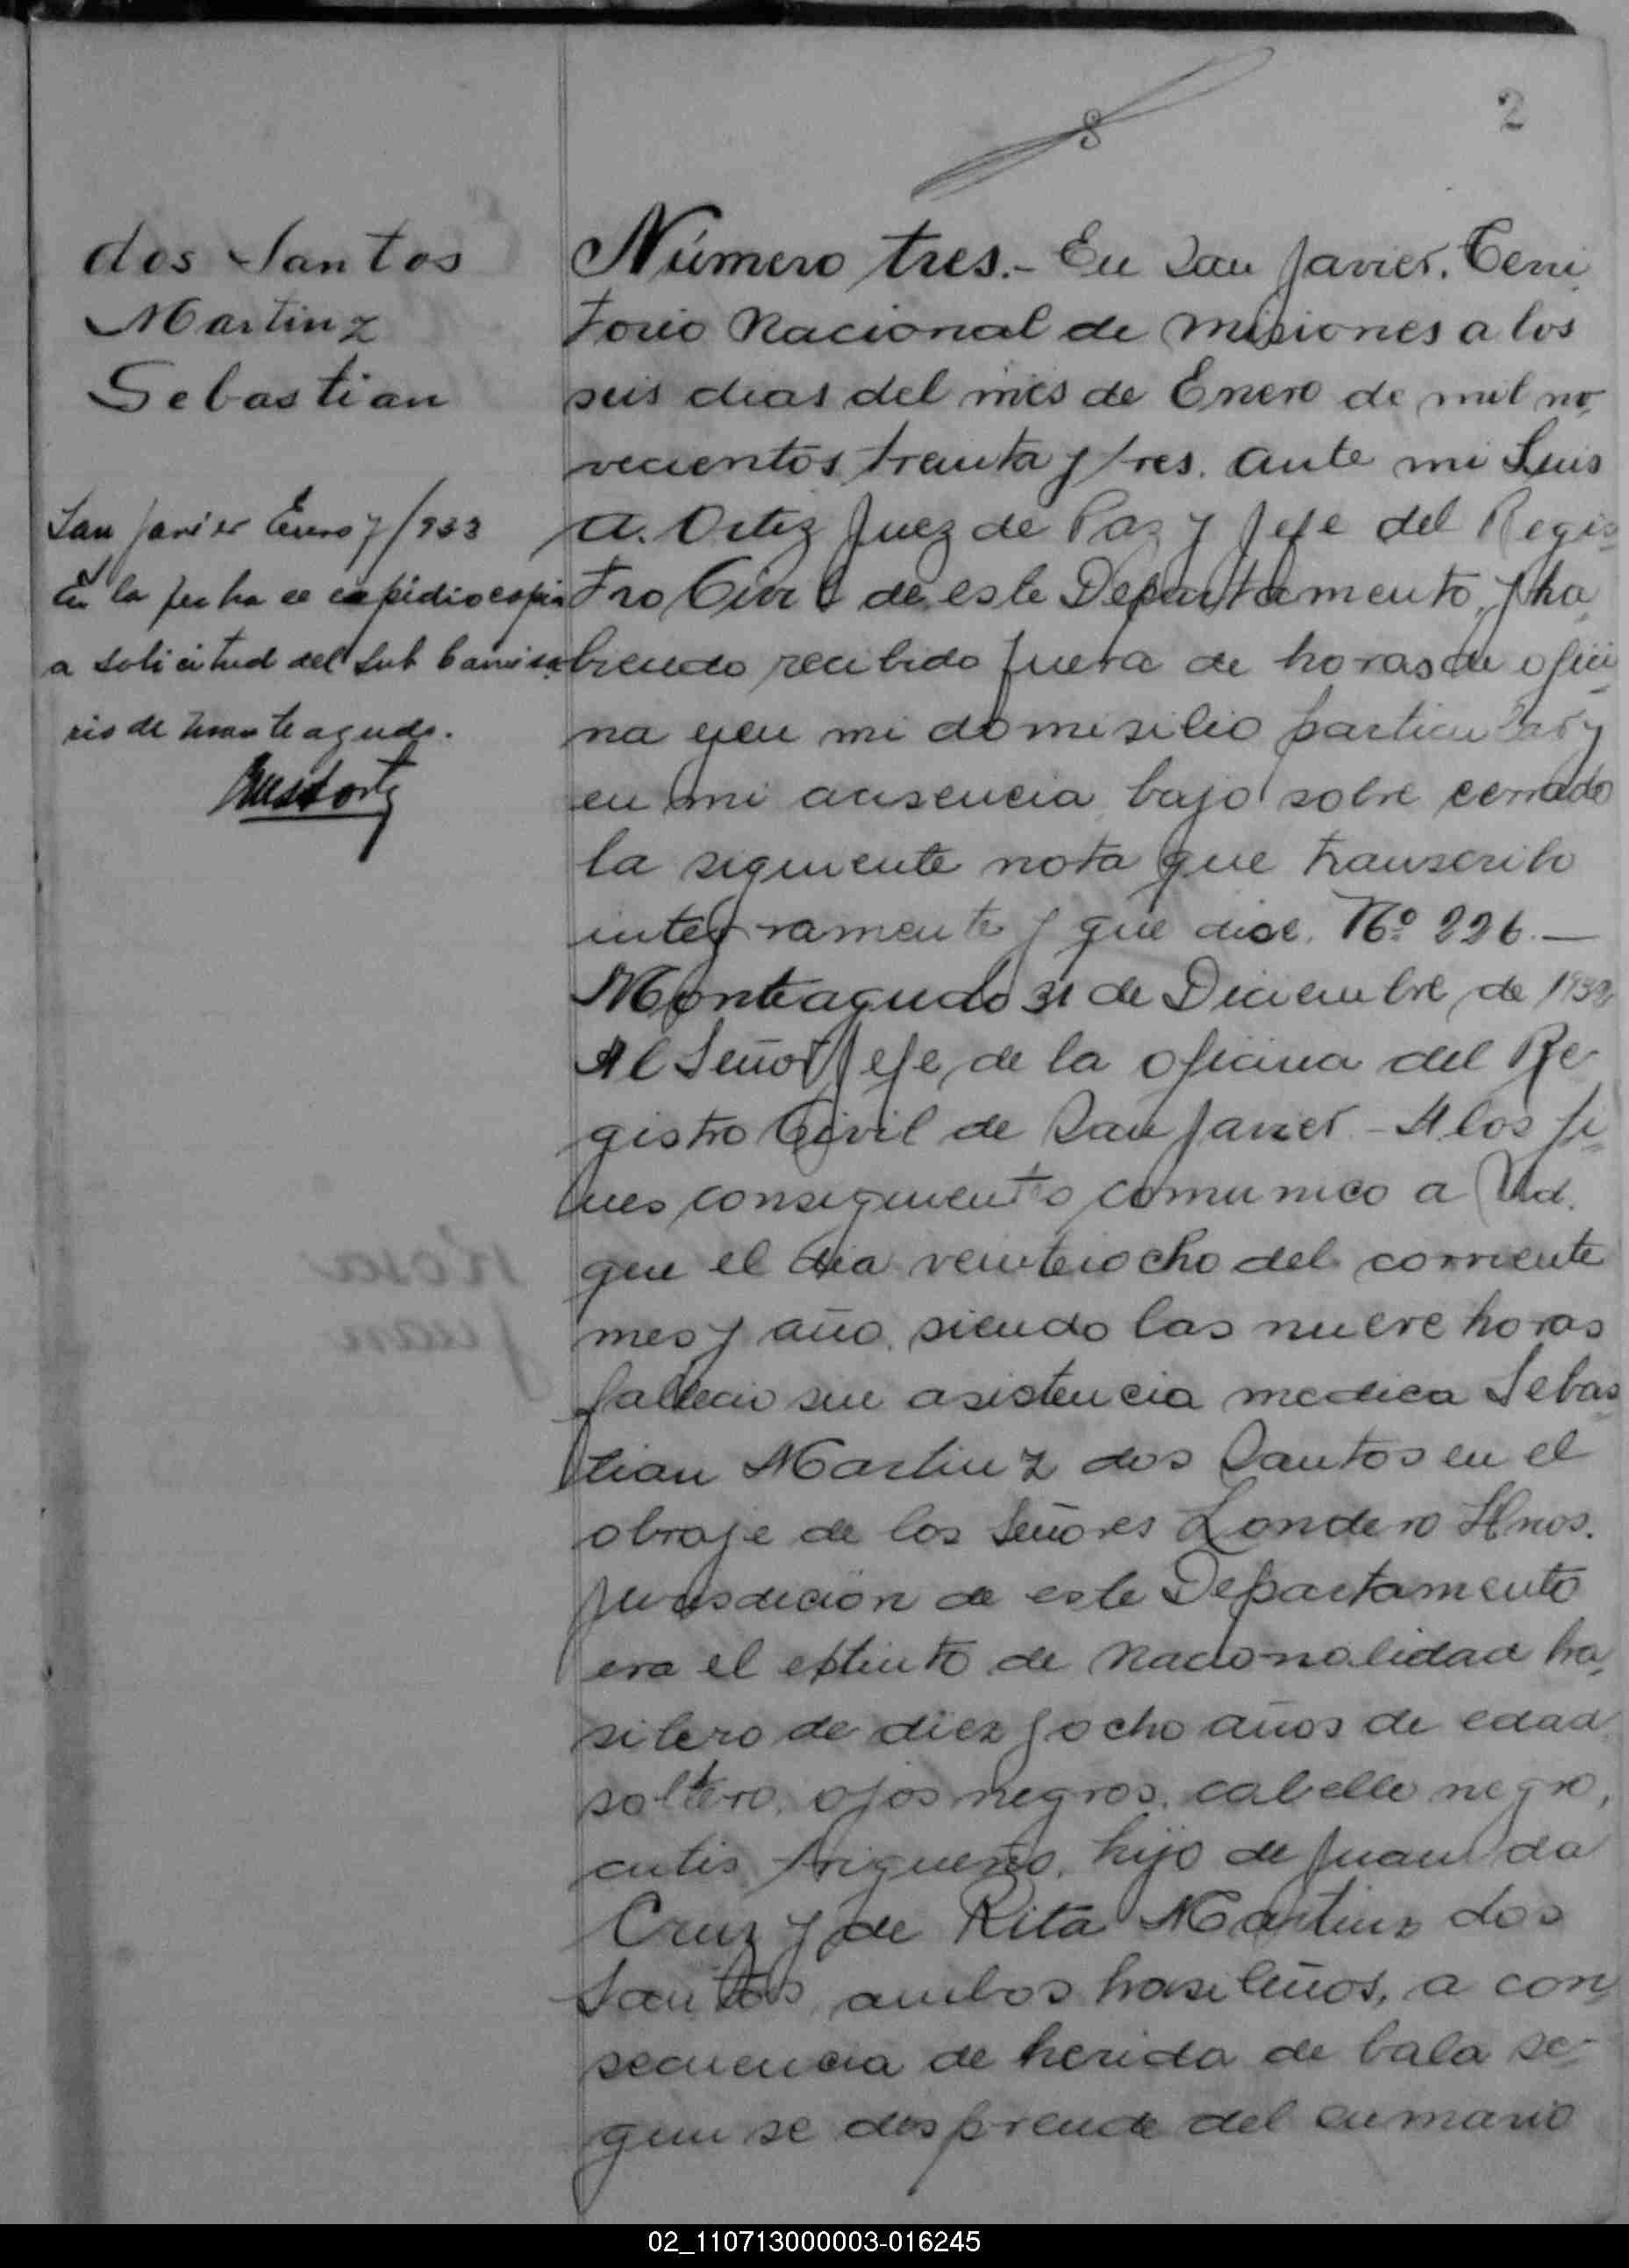 2
8
dos Santos
Martinz
Sebastian
San Javier Enero 7/933
En la fecha se expidio copia
a solicitud del Sub Comisa
rio de Monteagudo.
Número tres.- En San Javier. Terri
torio Nacional de Misiones a los
seis dias del mes de Enero de mil no
vecientos treinta y tres. ante mi Luis
A. Ortiz Juez de Paz y Jefe del Regis
tro Civil de este Departamento, y ha
biendo recibido fuera de horas de ofici
na y en mi domisilio particular y
en mi ausencia bajo sobre cerrado
la siguiente nota que transcribo
integramente y que dice. Nº 226.—
Monteagudo 31 de Diciembre de 1932
Al Señor Jefe de la oficina del Re-
gistro Civil de San Javier - A los fi
nes consiguientes comunico a Ud.
que el dia veinteiocho del corriente
mes y año, siendo las nueve horas
fallecio sin asistencia medica Sebas
tian Martinz dos Santos en el
obraje de los Señores Londero Hnos.
jurisdicion de este Departamento
era el extinto de Nacionalidad bra
silero de diez y ocho años de edad
soltero, ojos negros, cabello negro,
cutis trigueño, hijo de Juan da
Cruz y de Rita Martinz dos
Santos, ambos brasileños, a con
secuencia de herida de bala se-
gun se desprende del sumario
02_110713000003-016245